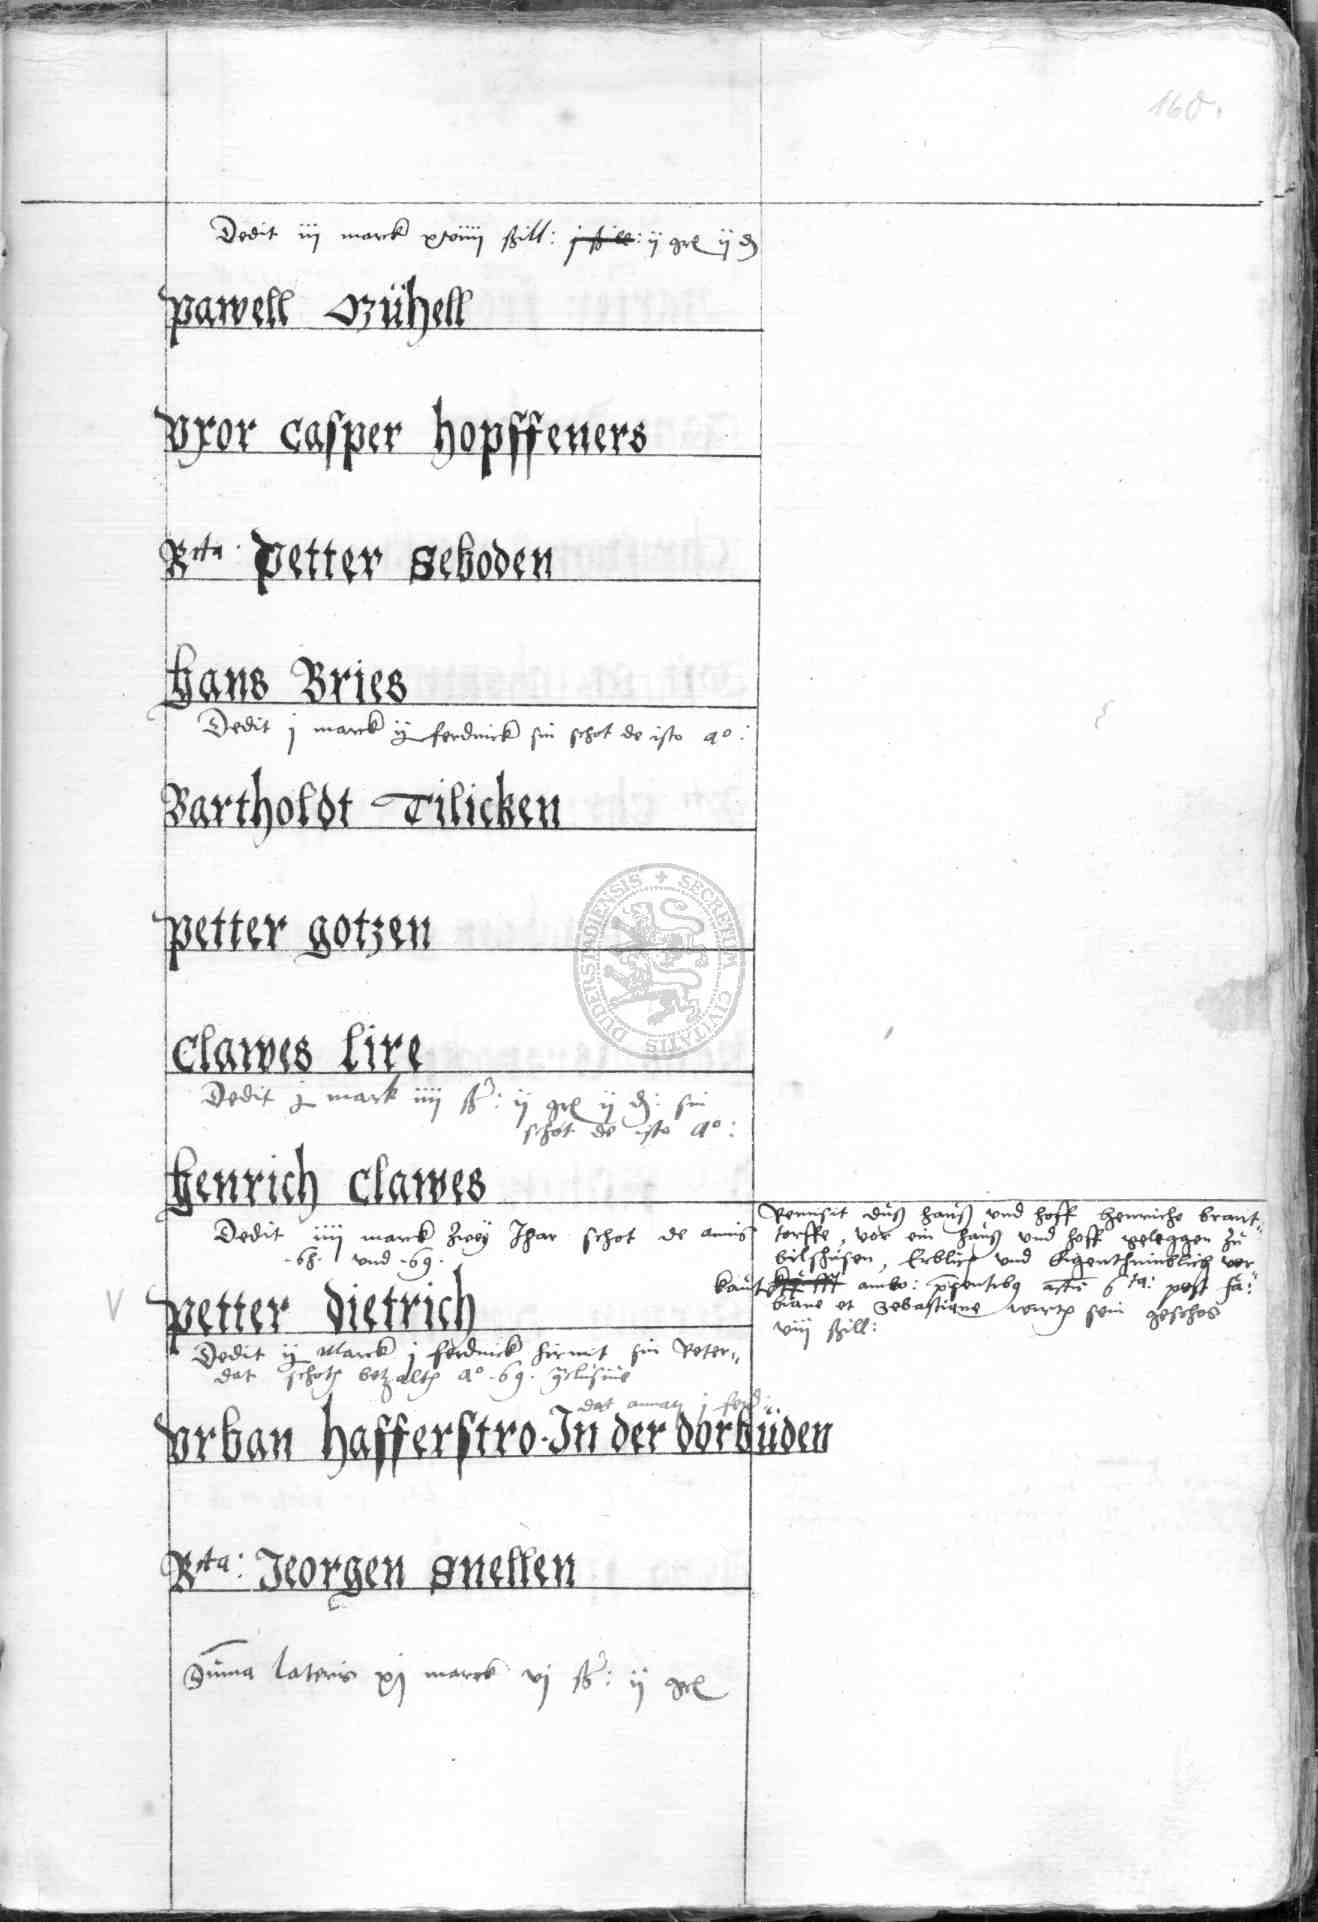 160.
Dedit iij marck xviiij ßill: j ßill: ij grl ij d
pawell Mühell
vxor casper hopffeners
Rcta: Petter seboden
Hans Bries
Dedit j marck ij ferdinck sin schot de isto ao:
Bartholdt Tilicken
petter gotzen
Clawes lire
Dedit j mark iiij ß: ij grl ij d: sin
schot de isto ao:
Henrich Clawes
Dedit iiij marck zwey Jhar schot de annis
.68. vnd .69.
petter dietrich
Dedit ij Marck j ferdinck hirmit sin
dat schoth betzalth ao .69. jclusiue
dat j ferd:
vrban hafferstro. In der dorbüden
Rcta: Jeorgen snellen
Summa lateris xj marck vj ß: ij grl
Remisit düß hauß vnd hoff Henriche brant-
torffe, vor ein hauß vnd hoff geleggen zu
bilshusen, Erblich vnd Eigenthumblich ver
kaut ambo: pntibq actu 6ta: post fa-
biane et Sebastiane sein geschos
viij ßill:
SECRETUM CIVITATIS DUDERSTADIENSIS